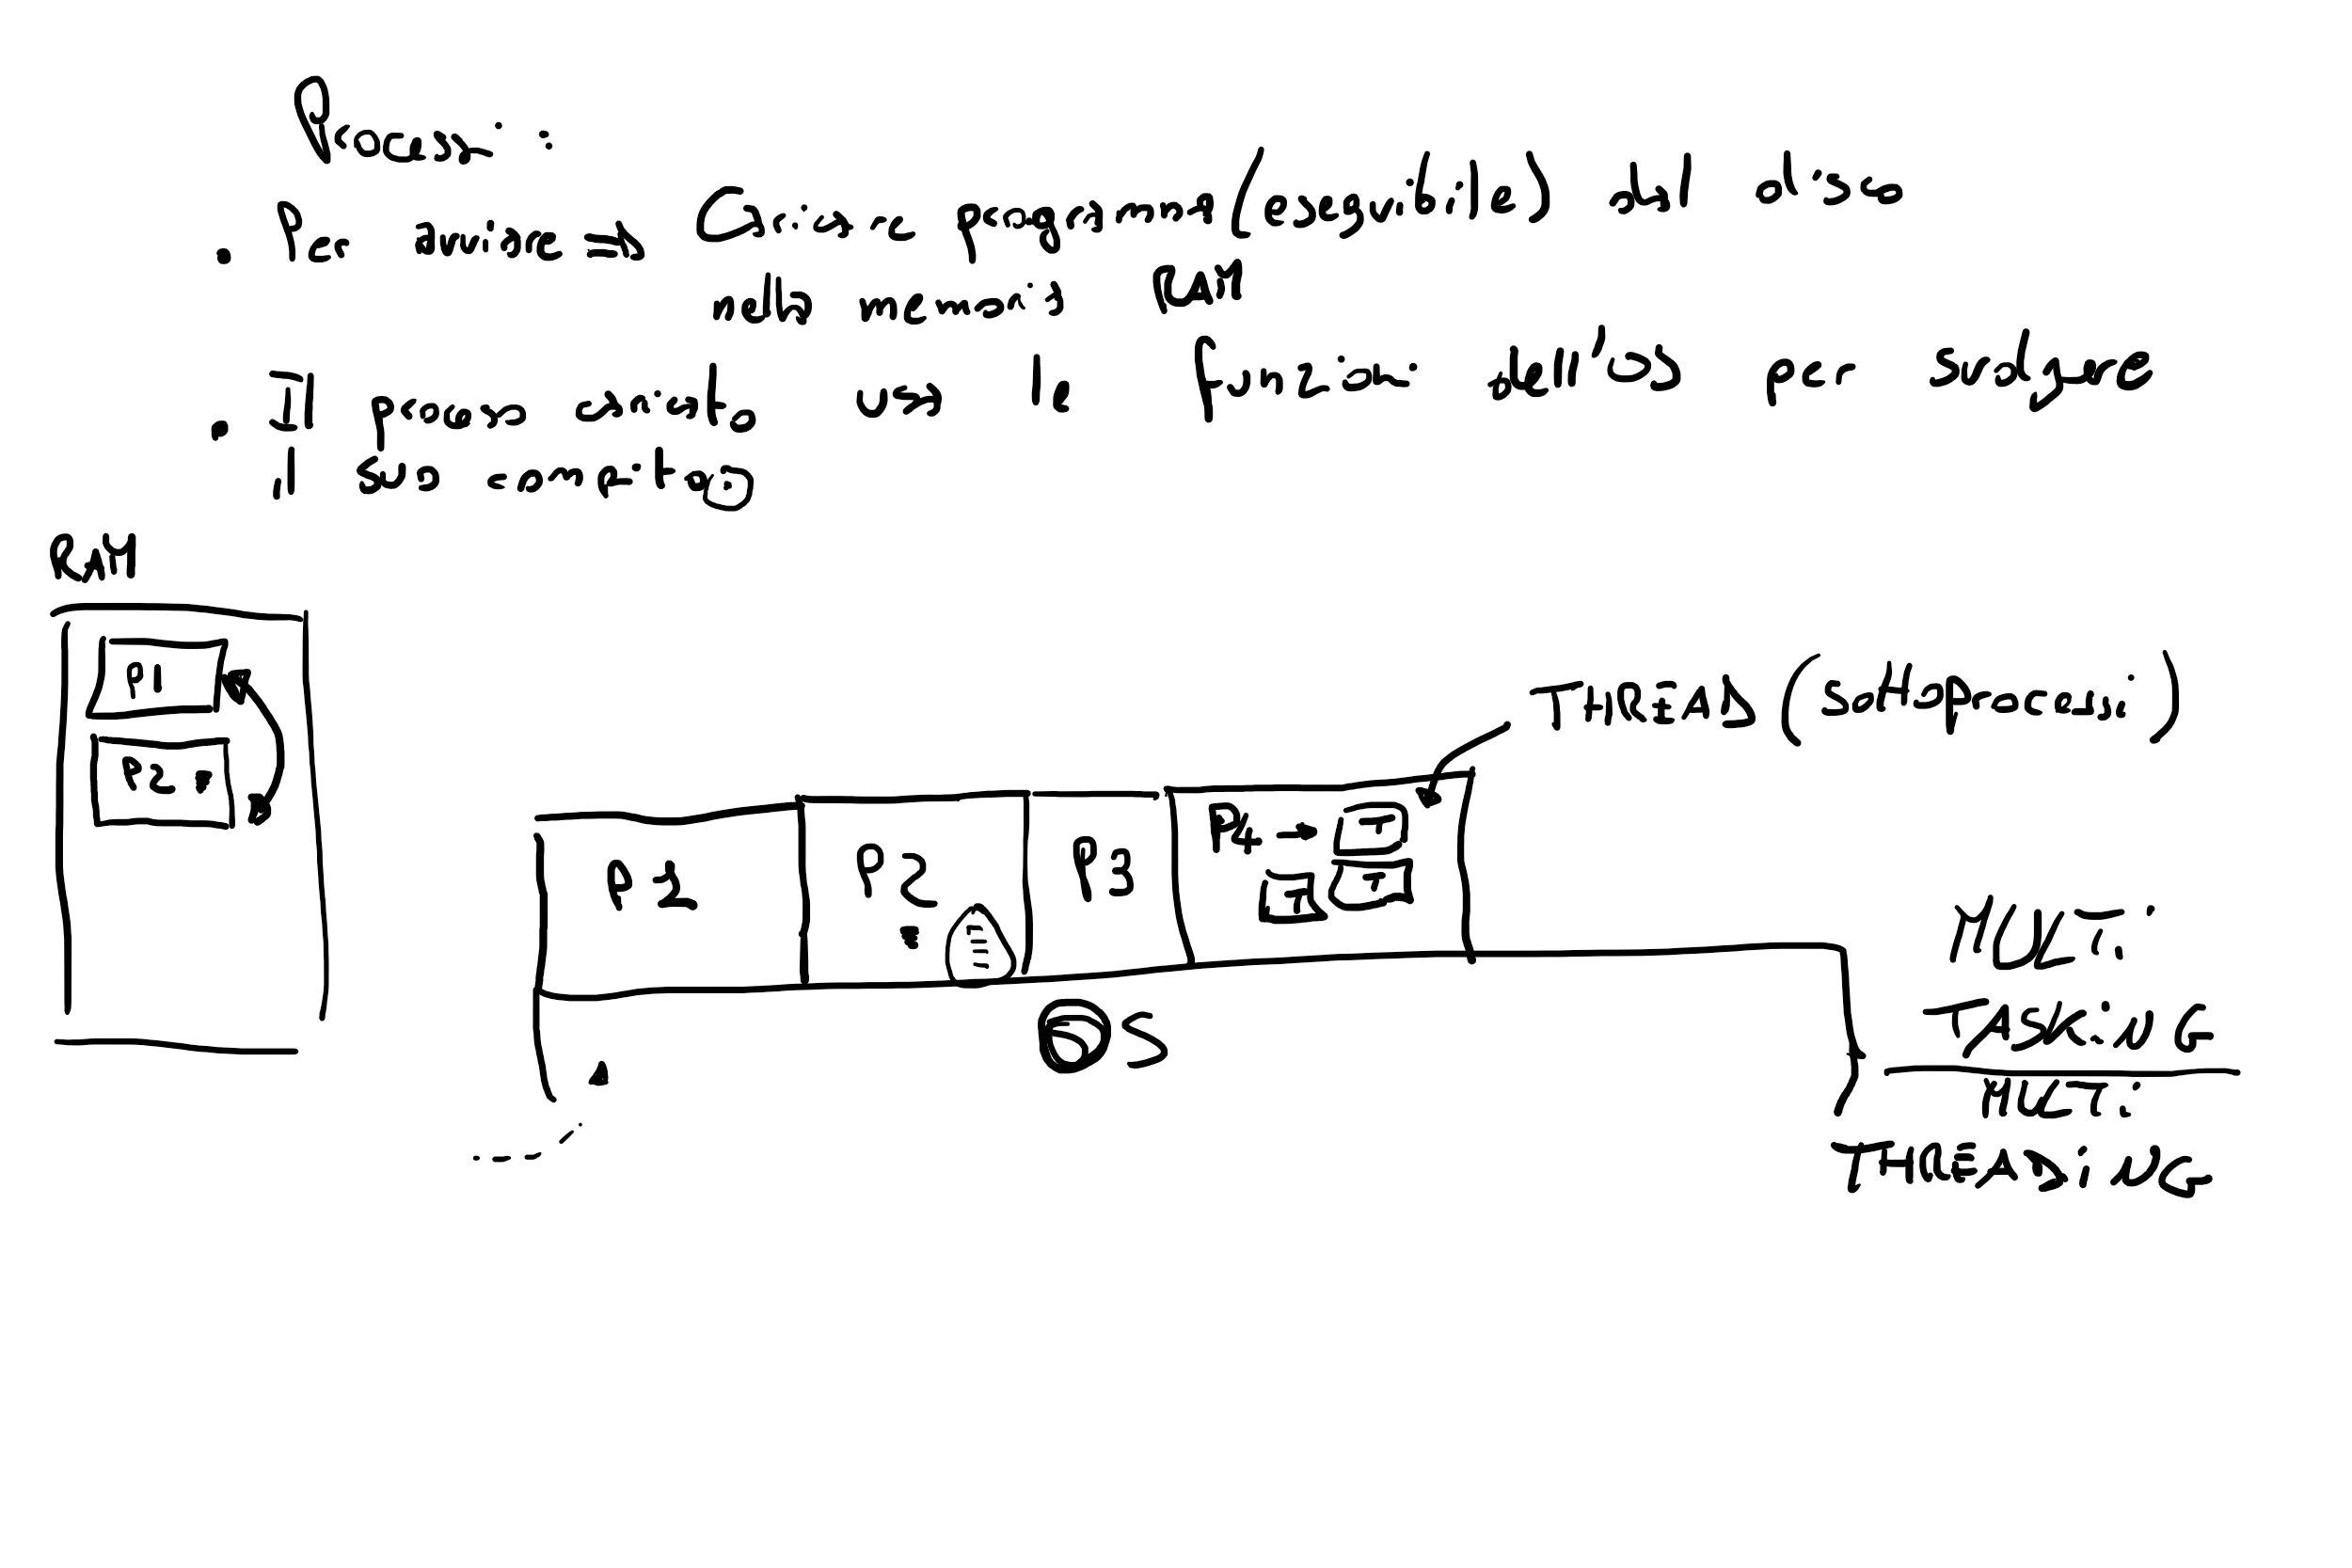 Processi :
. Per avviare => Caricare programma (eseguibile) dal disco
nella memoria RAM
. Il processo avviato usa le funzioni dell'OS per svolgere
Il suo compito.
RAM
P1
P2
THREAD (sottoprocessi)
P1
P2
P3
P4 → T
T
T
OS
MULTi
TASKiNG
MULTi
THREADiNG